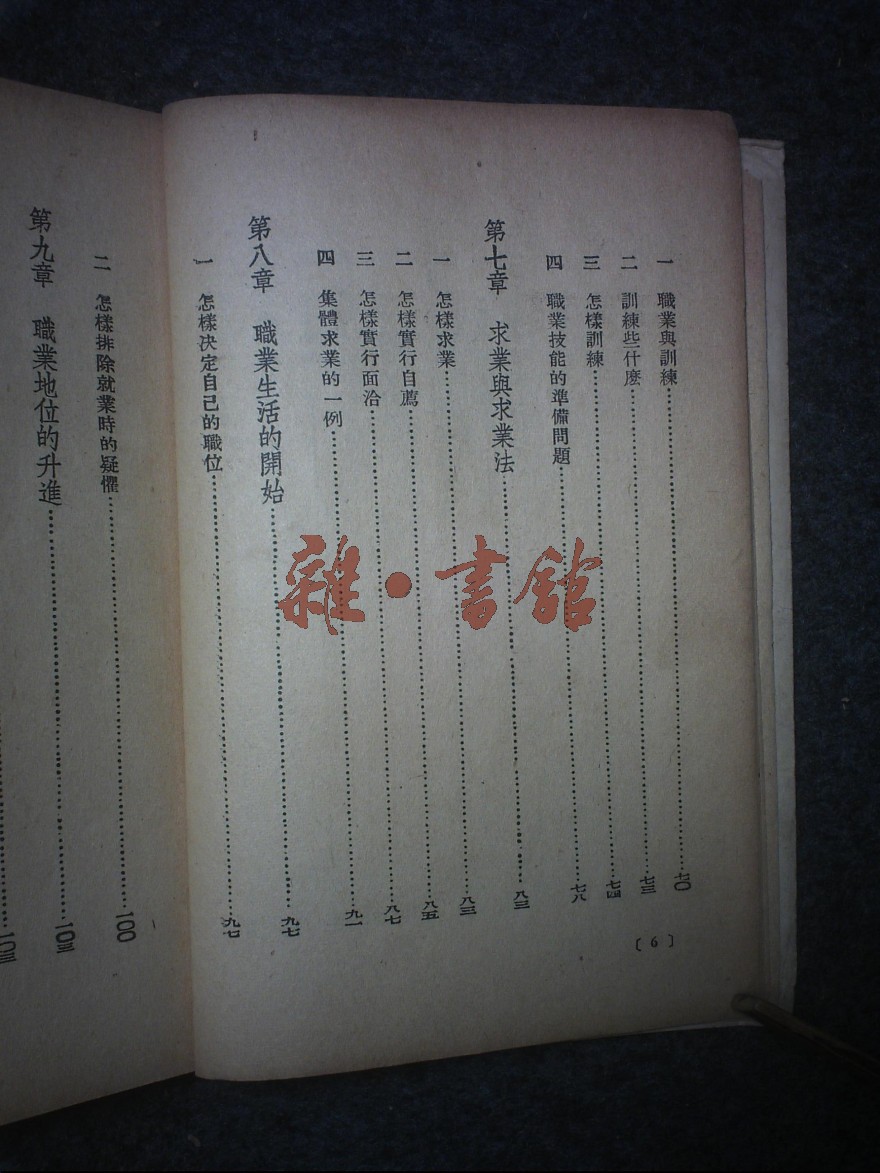 一 職業與訓練 七〇
二 訓練些什麼 七三
三 怎樣訓練 七四
四 職業技能的準備問題 七八
第七章 求業與求業法 八三
一 怎樣求業 八三
二 怎樣實行自薦 八五
三 怎樣實行面洽 八七
四 集體求業的一例 九一
第八章 職業生活的開始 九七
一 怎樣決定自己的職位 九七
〔6〕
二 怎樣排除就業時的疑懼 一〇〇
第九章 職業地位的升進 一〇三
一〇三
雜·書館